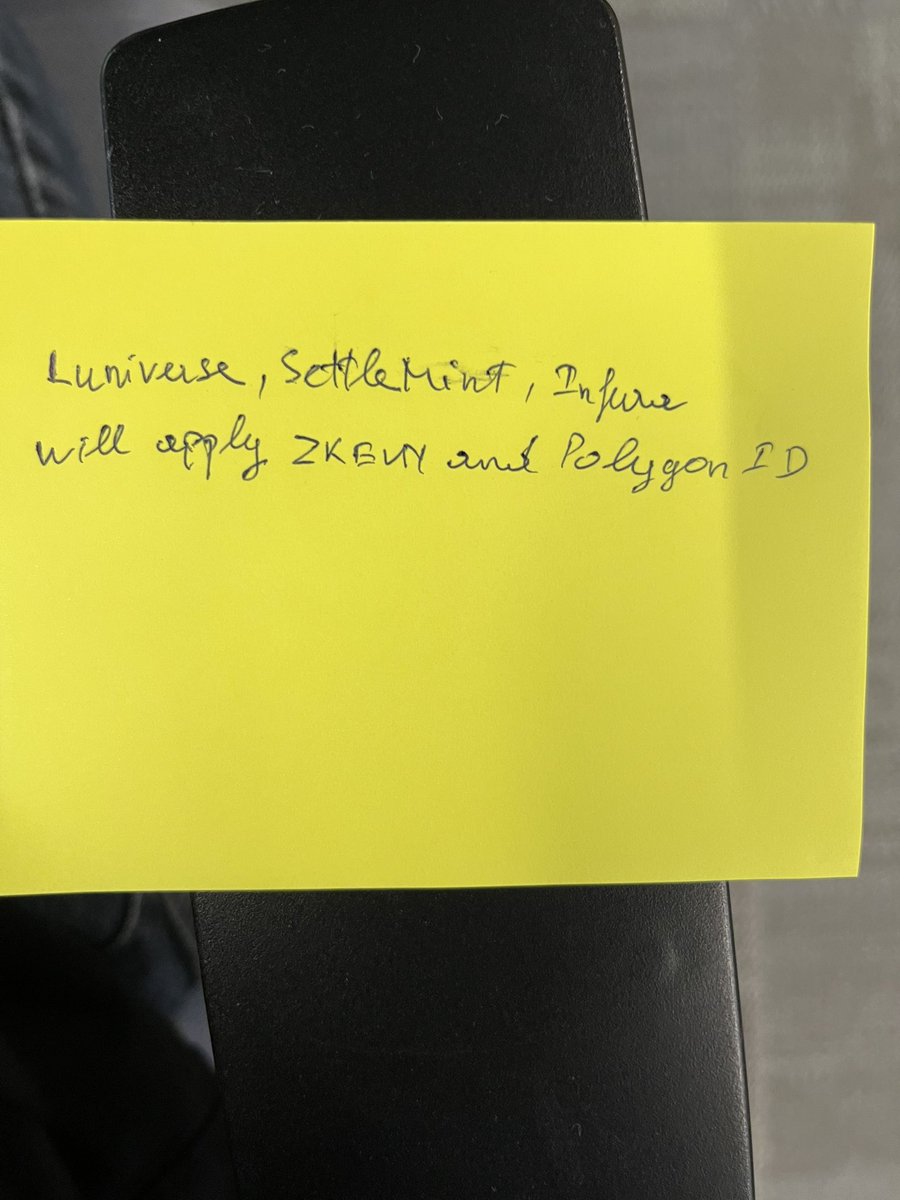 Luniverse, SettleMint, Infura
will apply ZKEVM and Polygon ID